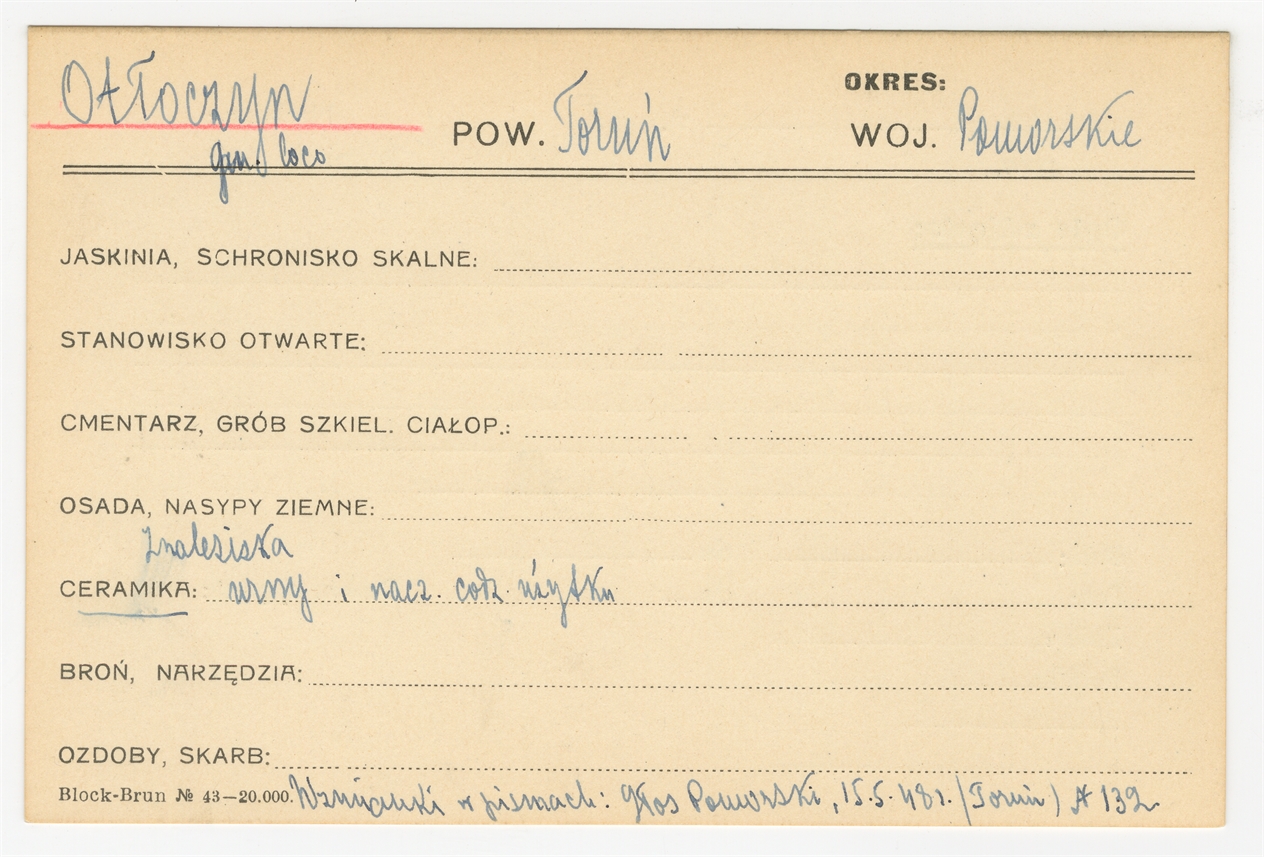 Otłoczyn
gm. loco
POW. Toruń
OKRES:
WOJ. Pomorskie
JASKINIA, SCHRONISKO SKALNE:
STANOWISKO OTWARTE:
CMENTARZ, GRÓB SZKIEL. CIAŁOP.:
OSADA, NASYPY ZIEMNE:
Znaleziska
CERAMIKA: urny i nacz. codz. użytku
BROŃ, NARZĘDZIA:
OZDOBY, SKARB:
Block-Brun № 43—20.000. Wzmianki w pismach: Głos Pomorski, 15.5.48 r. (Toruń) 132